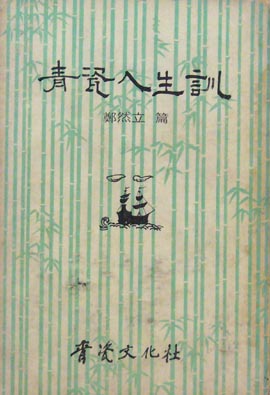 青瓷人生訓
鄭然立 篇
青瓷文化社